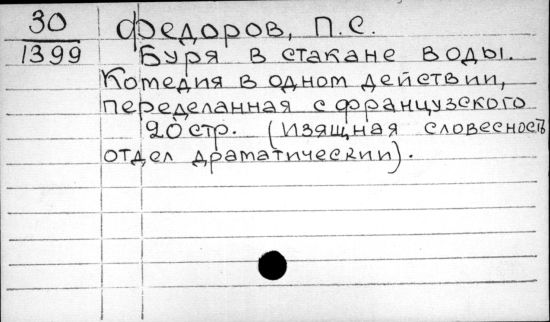 30 Федоров, П.С.
1399 Буря в стакане воды.
Комедия в одном действии,
переделанная с французского
20 стр. (Изящная словесность
отдел драматический).